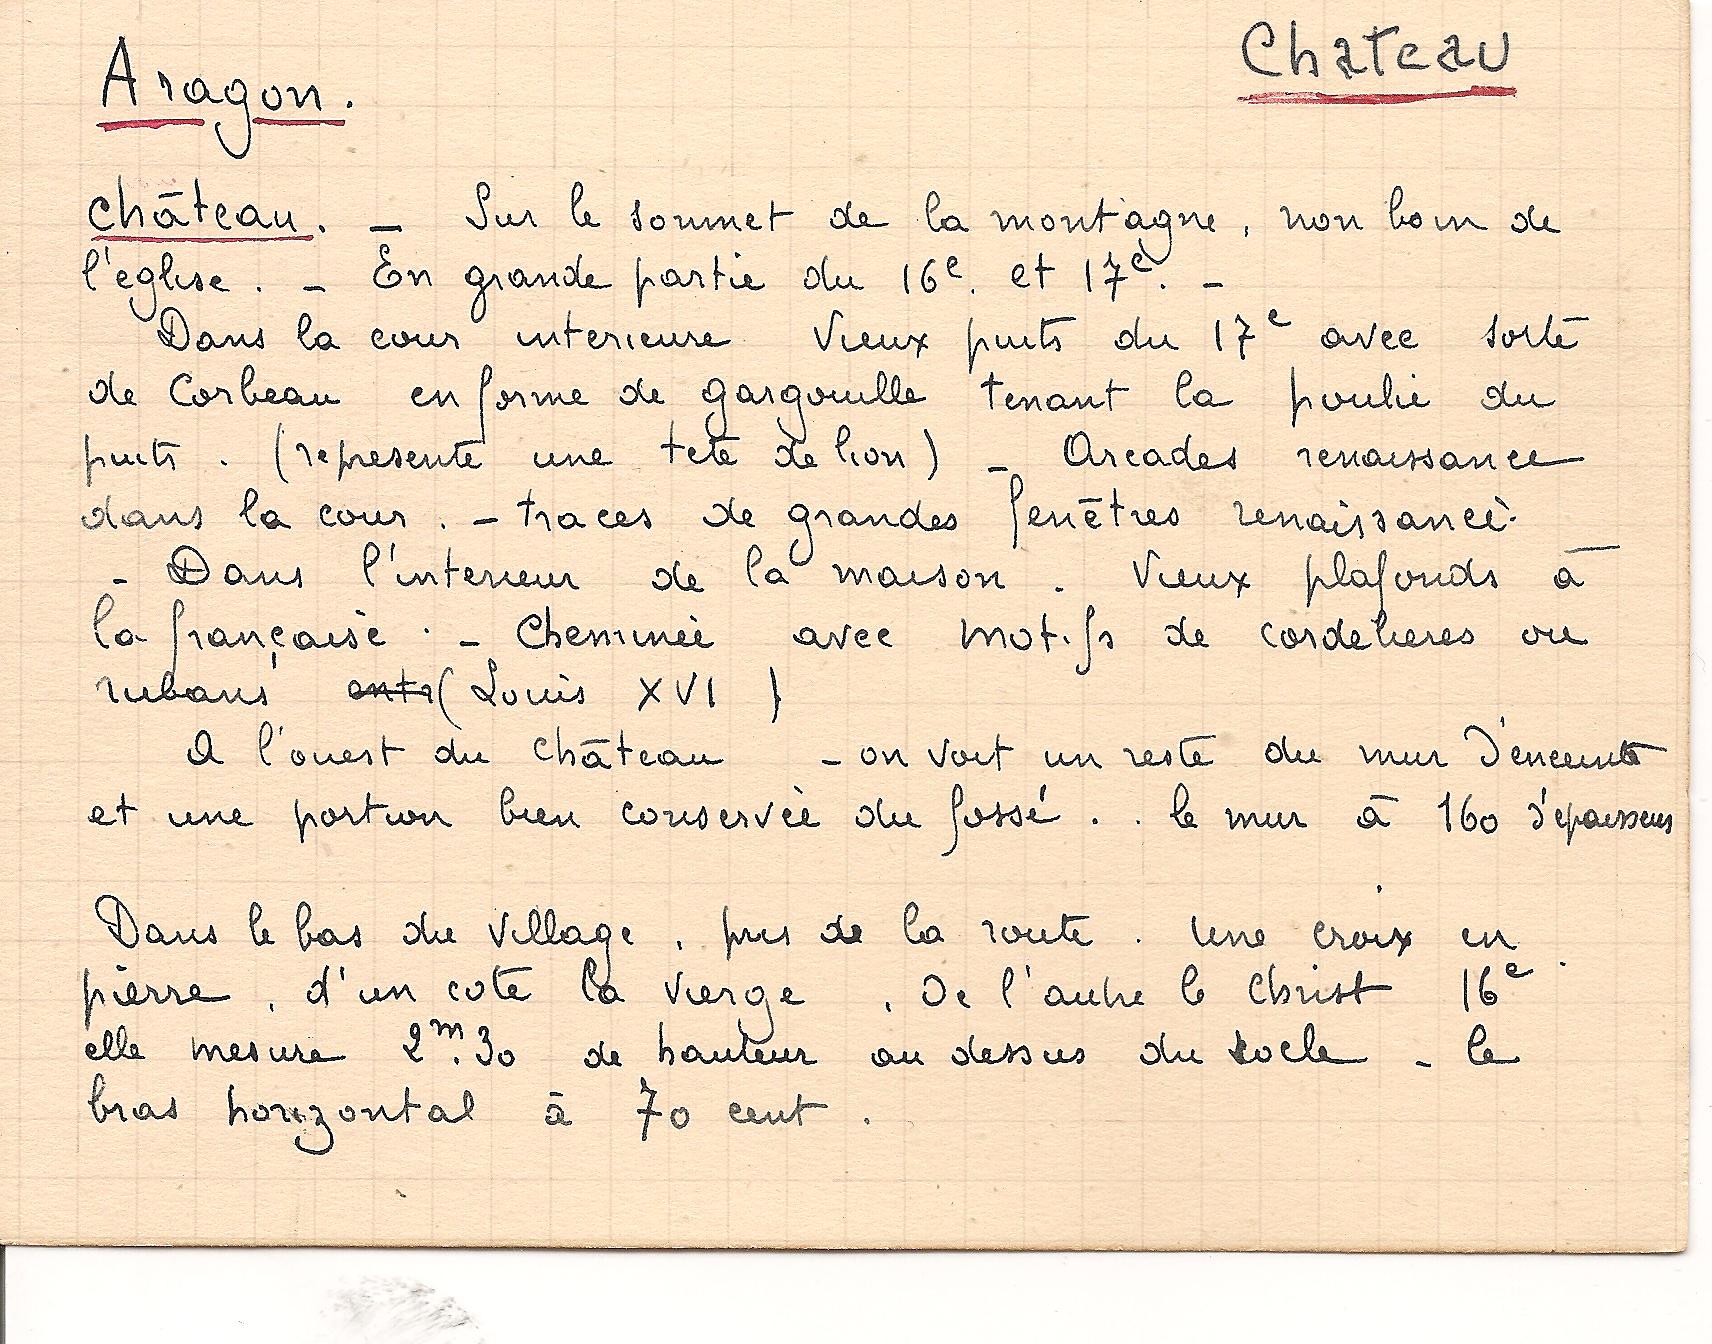 Aragon.
Chateau
Château. – Sur le sommet de la montagne, non loin de
l'église. – En grande partie du 16e. et 17e. –
Dans la cour interieure Vieux puits du 17e avec sorte
de Corbeau en forme de gargouille tenant la poulie du
puits. (représente une tete de lion) – Arcades renaissance
dans la cour. – traces de grandes fenêtres renaissance.
– Dans l'interieur de la maison. Vieux plafonds à
la française. – Cheminée avec motifs de cordelieres ou
rubans entr (Louis XVI)
A l'ouest du Château – on voit un reste du mur d'enceinte
et une portion bien conservée du fossé. . le mur à 160 d'épaisseur
Dans le bas du village, pres de la route. Une croix en
pierre, d'un coté la Vierge, de l'autre le Christ 16e.
elle mesure 2m.30 de hauteur au dessus du socle – le
bras horizontal à 70 cent.